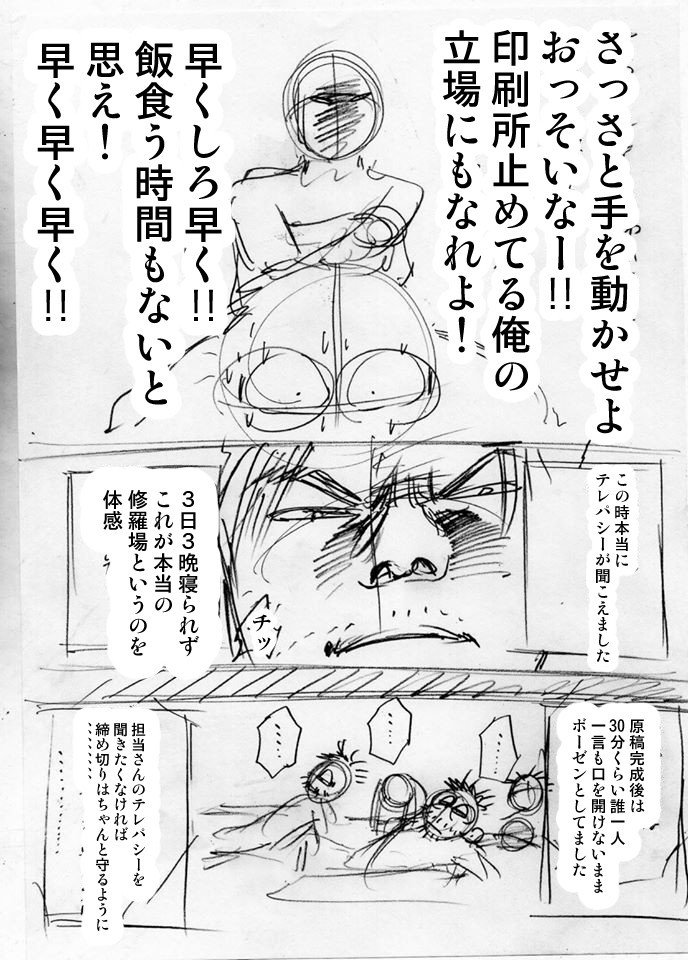 さっさと手を動かせよ
おっそいなー!!
印刷所止めてる俺の
立場にもなれよ!
早くしろ早く!!
飯食う時間もないと
思え!
早く早く早く!!
この時本当に
テレパシーが聞こえました
3日3晩寝られず
これが本当の
修羅場というのを
体感
チッ
原稿完成後は
30分くらい誰一人
一言も口を開けないまま
ボーゼンとしてました
……
……
……
担当さんのテレパシーを
聞きたくなければ
締め切りはちゃんと守るように
………